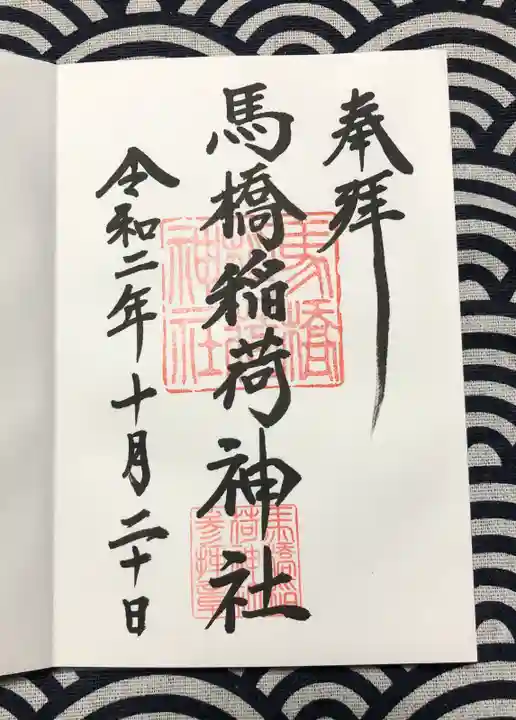 奉拜
馬橋稲荷神社
令和二年十月二十日
馬橋稲荷神社
馬橋稲荷神社参拝章